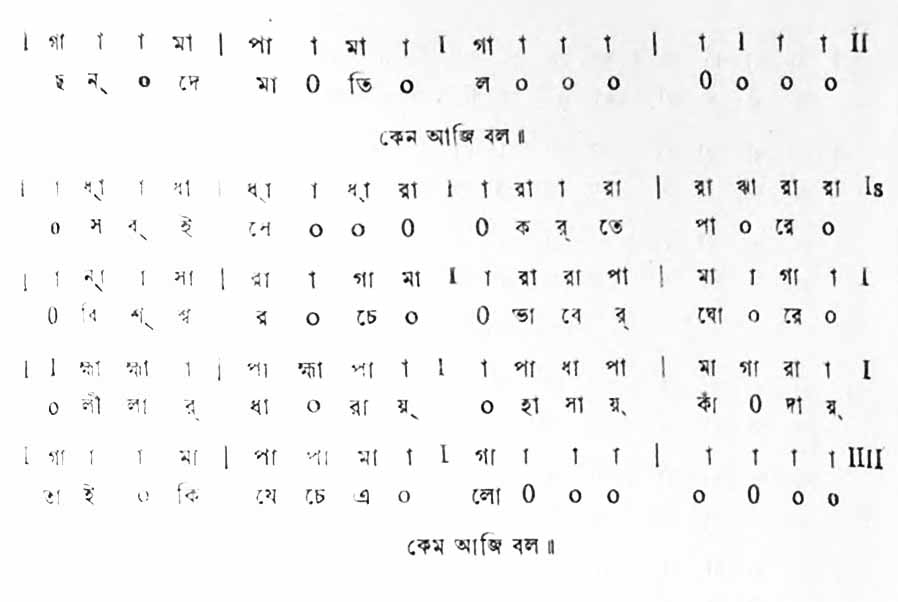 I গা া া মা | পা া মা া I গা া া া | া I া া II
ছ ন্ ০ দে মা 0 তি ০ ল ০ ০ ০ 0 ০ ০ ০
কেন আজি বল॥
I া ধ্া া ধা | ধ্া া ধ্া রা I া রা া রা | রা ঝা রা রা Is
০ স ব্ ই সে ০ ০ 0 0 ক র্ তে পা ০ রে ০
| া ন্া া সা | রা া গা মা I া রা রা পা | মা া গা া I
0 বি শ্ শ্ব র ০ চে ০ 0 ভা বে র্ ঘো ০ রে ০
I I হ্মা হ্মা া | পা হ্মা পা া I া পা ধা পা | মা গা রা া I
০ লী লা র্ ধা ০ রা য়্ ০ হা সা য়্ কাঁ 0 দা য়্
I গা া া মা | পা পা মা া I গা া া া | া া া া IIII
তা ই ০ কি যে চে এ ০ লো 0 ০ ০ ০ 0 ০ ০
কেম আজি বল॥